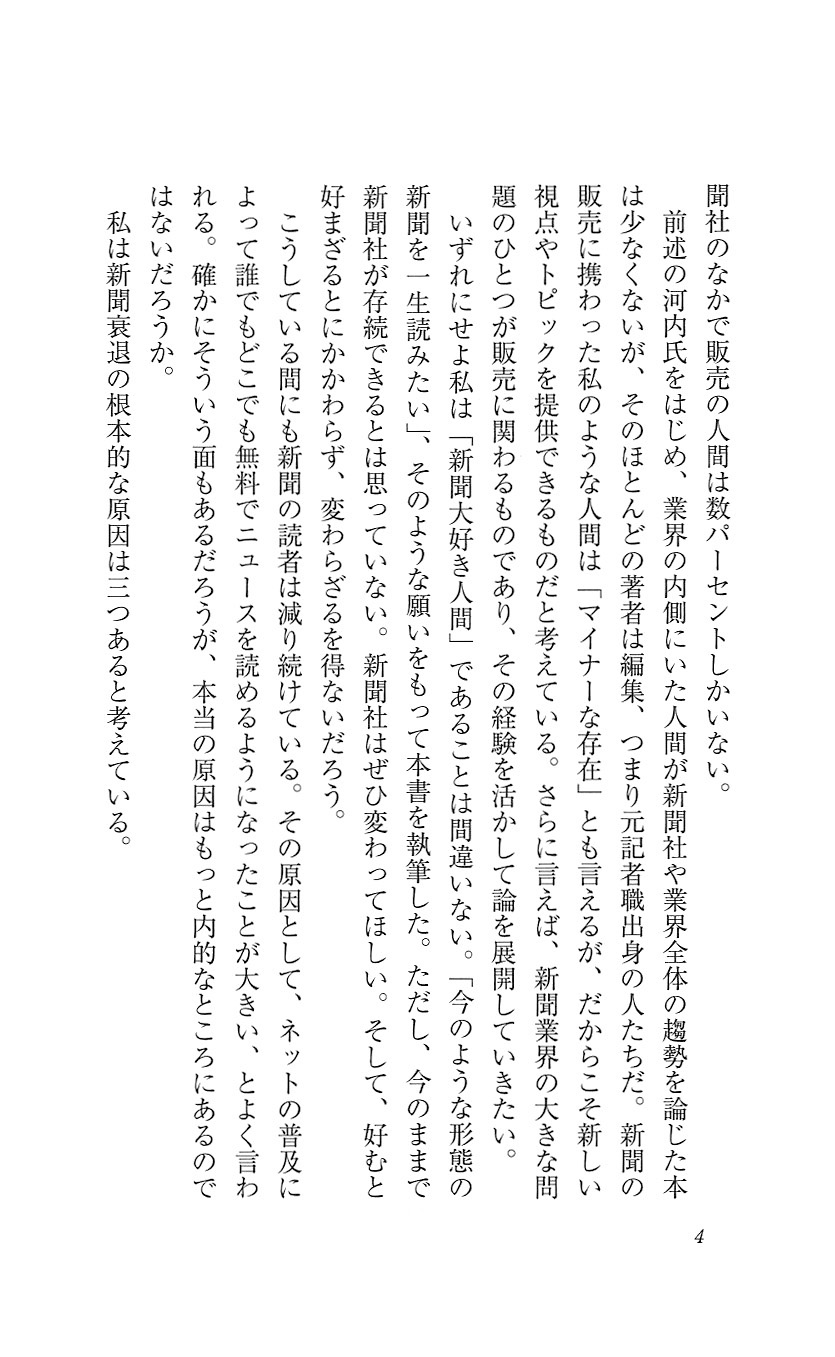 聞社のなかで販売の人間は数パーセントしかいない。
　前述の河内氏をはじめ、業界の内側にいた人間が新聞社や業界全体の趨勢を論じた本
は少なくないが、そのほとんどの著者は編集、つまり元記者職出身の人たちだ。新聞の
販売に携わった私のような人間は「マイナーな存在」とも言えるが、だからこそ新しい
視点やトピックを提供できるものだと考えている。さらに言えば、新聞業界の大きな問
題のひとつが販売に関わるものであり、その経験を活かして論を展開していきたい。
　いずれにせよ私は「新聞大好き人間」であることは間違いない。「今のような形態の
新聞を一生読みたい」、そのような願いをもって本書を執筆した。ただし、今のままで
新聞社が存続できるとは思っていない。新聞社はぜひ変わってほしい。そして、好むと
好まざるとにかかわらず、変わらざるを得ないだろう。
　こうしている間にも新聞の読者は減り続けている。その原因として、ネットの普及に
よって誰でもどこでも無料でニュースを読めるようになったことが大きい、とよく言わ
れる。確かにそういう面もあるだろうが、本当の原因はもっと内的なところにあるので
はないだろうか。
　私は新聞衰退の根本的な原因は三つあると考えている。
4